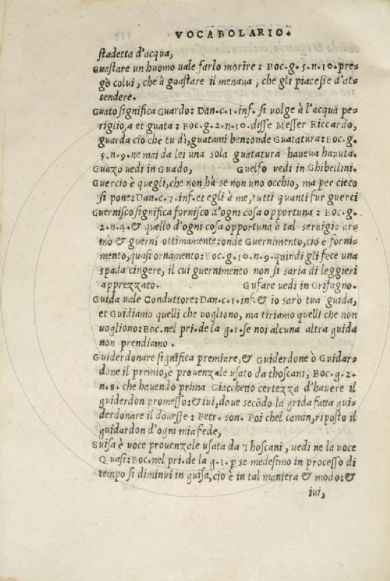 VOCABOLARIO.
stadetta d'acqua,
Guastare un huomo uale farlo morire: Boc.g.5.n.10.pre-
gò colui, che à guastare il menaua, che gli piacesse d'at-
tendere.
Guato significa Guardo: Dan.c.1.inf. si uolge à l'acqua pe-
rigliosa et guata: Boc.g.2.n.10.disse Messer Riccardo,
guarda ciò che tu dì, guatami ben: onde Guatatura: Boc.g.
5.n.9.ne mai da lei una sola guatatura haueua hauuta.
Guazo uedi in Guado, Guelfo uedi in Ghibellini.
Guercio è quegli, che non hà se non uno occhio, ma per cieco
si pone: Dan.c.7.inf.et egli à me, tutti quanti fur guerci
Guernisco significa fornisco d'ogni cosa opportuna: Boc.g.
2.n.4.& quello d'ogni cosa opportuna à tal seruigio ar-
mò & guernì ottimamente: onde Guernimento, cio è forni-
mento, quasi ornamento: Boc.g.10.n.9.quindi gli fece una
spada cingere, il cui guernimento non si saria di leggieri
apprezzato. Gufare uedi in Grifagno.
Guida uale Conduttore: Dan.c.1.inf.& io sarò tua guida,
et Guidiamo quelli che uogliono, ma tiriamo quelli che non
uogliono: Boc.nel pri.de la g.1.se noi alcuna altra guida
non prendiamo.
Guiderdonare significa premiare, & Guiderdone ò Guidar-
done il premio, è prouenzale usato da thoscani, Boc.g.2.
n.8.che hauendo prima Giacchetto certezza d'hauere il
guiderdon promesso: & iui, doue secõdo la grida fatta gui-
derdonare il douesse: Petr. son. Poi che'l camin, riposto il
guidardon d'ogni mia fede,
Guisa è uoce prouenzale usata da Thoscani, uedi ne la uoce
Quasi: Boc.nel pri.de la g.1.p se medesimo in processo di
tempo si diminuì in guisa, cio è in tal maniera & modo: &
iui,